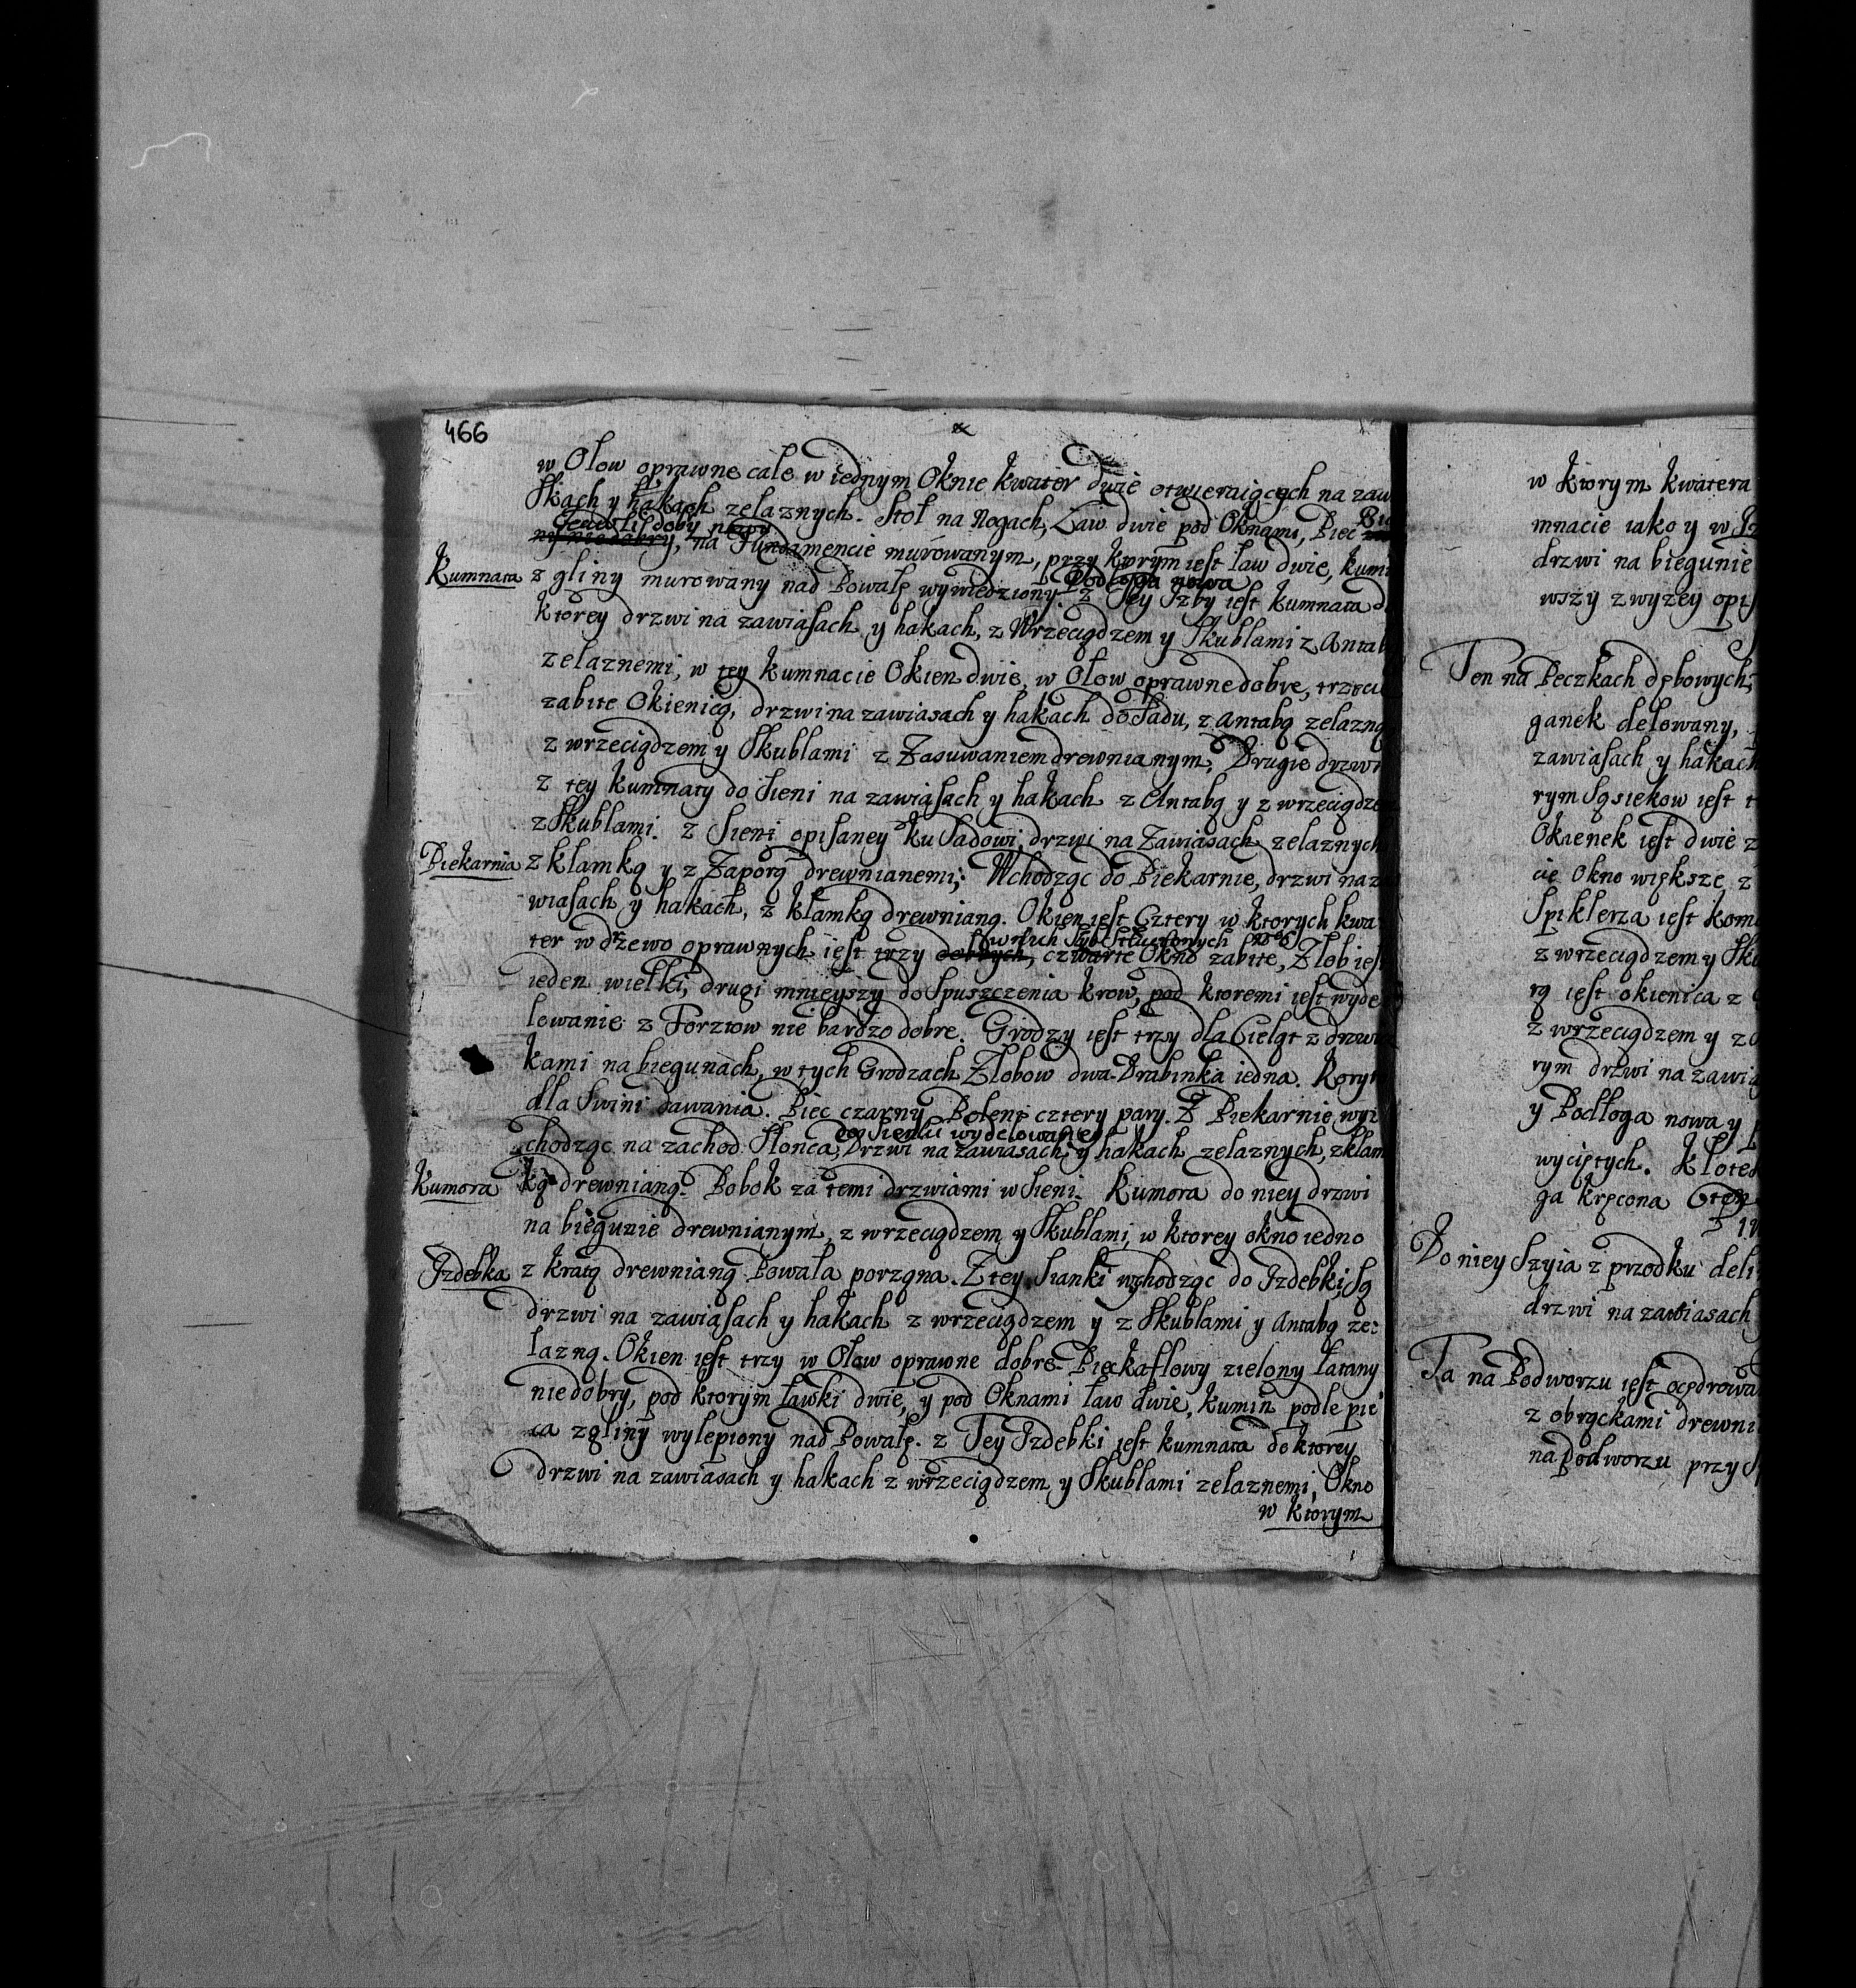 466
w Ołow oprawne cale w iednym Oknie kwater dwie otwieraiących na zaw
skach y hakach zelaznych. Stoł na Nogach, Ław dwie pod Oknami, Piec
nowy
ny niedobry, na Fundamencie murowanym, przy ktorym iest ław dwie, kumi
Podłoga nowa
Kumnata z gliny murowany nad Powałę wywiedziony. z Tey Izby iest kumnata d
ktorey drzwi na zawiasach y hakach, z Wrzeciądzem y Skublami z Antab
zelaznemi, w tey kumnacie Okien dwie, w Ołow oprawne dobre, trzeci
zabite Okienicą, drzwi na zawiasach y hakach do Sadu, z Antabą zelazną
z wrzeciądzem y Skublami z Zasuwaniem drewnianym, Drugie drzwi
z tey kumnaty do Sieni na zawiasach y hakach z Antabą y z wrzeciądze
z Skublami. z Sieni opisaney ku Sadowi, drzwi na Zawiasach zelaznych
Piekarnia z klamką y z Zaporą drewnianemi; Wchodząc do Piekarnie, drzwi na za
wiasach y hakach, z klamką drewnianą. Okien iest Cztery w ktorych kwa
w nich szyb stłuczonych
ter w drzewo oprawnych iest trzy dobrych, czwarte Okno zabite, Złob iest
ieden wielki, drugi mnieyszy do Spuszczenia krow, pod ktoremi iest wyde
lowanie z Forztow nie bardzo dobre. Grodzy iest trzy dla Cieląt z drzwi
kami na biegunach, w tych Grodzach Złobow dwa. Drabinka iedna. Koryt
dla Swini dawania. Piec czarny Poleni cztery pary. Z Piekarnie wyi
do Sieńki wydelowaney
chodząc na zachod Słonca, Drzwi na zawiasach y hakach zelaznych, z klam
Kumora ką drewnianą. Pobok za temi drzwiami w Sieni. Kumora do niey drzwi
na biegunie drewnianym, z wrzeciądzem y Skublami, w ktorey okno iedno
Izdebka z kratą drewnianą Powała porząna. Z tey Sianki wchodząc do Izdebki, Są
drzwi na zawiasach y hakach z wrzeciądzem y z Skublami y Antabą ze:
lazną. Okien iest trzy w Ołow oprawne dobre. Piec kaflowy zielony łatany
niedobry, pod ktorym ławki dwie, y pod Oknami ław dwie, kumin podle pie
ca z gliny wylepiony nad Powałę. z Tey Izdebki iest kumnata do ktorey
drzwi na zawiasach y hakach z wrzeciądzem y Skublami zelaznemi, Okno
w ktorym
w ktorym kwatera
mnacie iako y w Iz
drzwi na biegunie
wszy zwyzey opis
Ten na Peczkach dębowych,
ganek delowany,
zawiasach y hakach
rym Sąsiekow iest t
Okienek iest dwie z
cie Okno większe, z
Spiklerza iest kom
z wrzeciądzem y Sku
rą iest okienica z
z wrzeciądzem y z
rym drzwi na zawia
y Podłoga nowa y
wyciętych. Kłotek
ga kręcona
Do niey Szyia z przodku deli
drzwi na zawiasach
Ta na Podworzu iest ocędrowa
z obrączkami drewni
na podworzu przy S